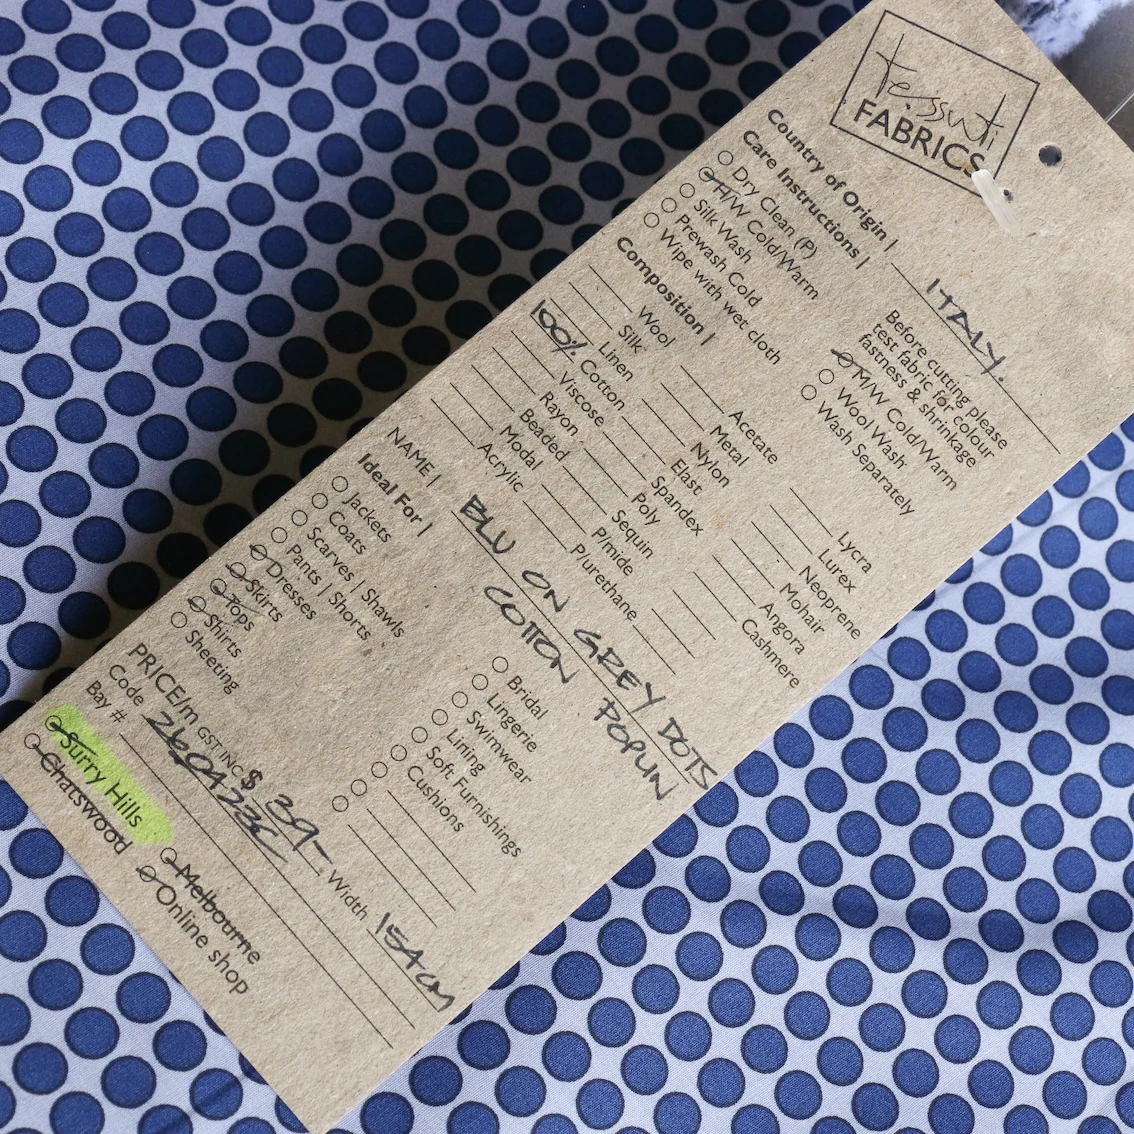 tessuti
FABRICS
Country of Origin | ITALY.
Care Instructions |
Dry Clean (P)
H/W Cold/Warm
Silk Wash
Prewash Cold
Wipe with wet cloth
Before cutting please
test fabric for colour
fastness & shrinkage
M/W Cold/Warm
Wool Wash
Wash Separately
Composition |
Wool
Silk
Linen
100% Cotton
Viscose
Rayon
Beaded
Modal
Acrylic
Acetate
Metal
Nylon
Elast
Spandex
Poly
Sequin
P/mide
P/urethane
Lycra
Lurex
Neoprene
Mohair
Angora
Cashmere
NAME | BLU ON GREY DOTS
COTTON POPLIN
Ideal For |
Jackets
Coats
Scarves | Shawls
Pants | Shorts
Dresses
Skirts
Tops
Shirts
Sheeting
Bridal
Lingerie
Swimwear
Lining
Soft Furnishings
Cushions
PRICE/m GST INC $ 39- Width 154cm
Code 2604223C
Bay #
Surry Hills
Chatswood
Melbourne
Online shop